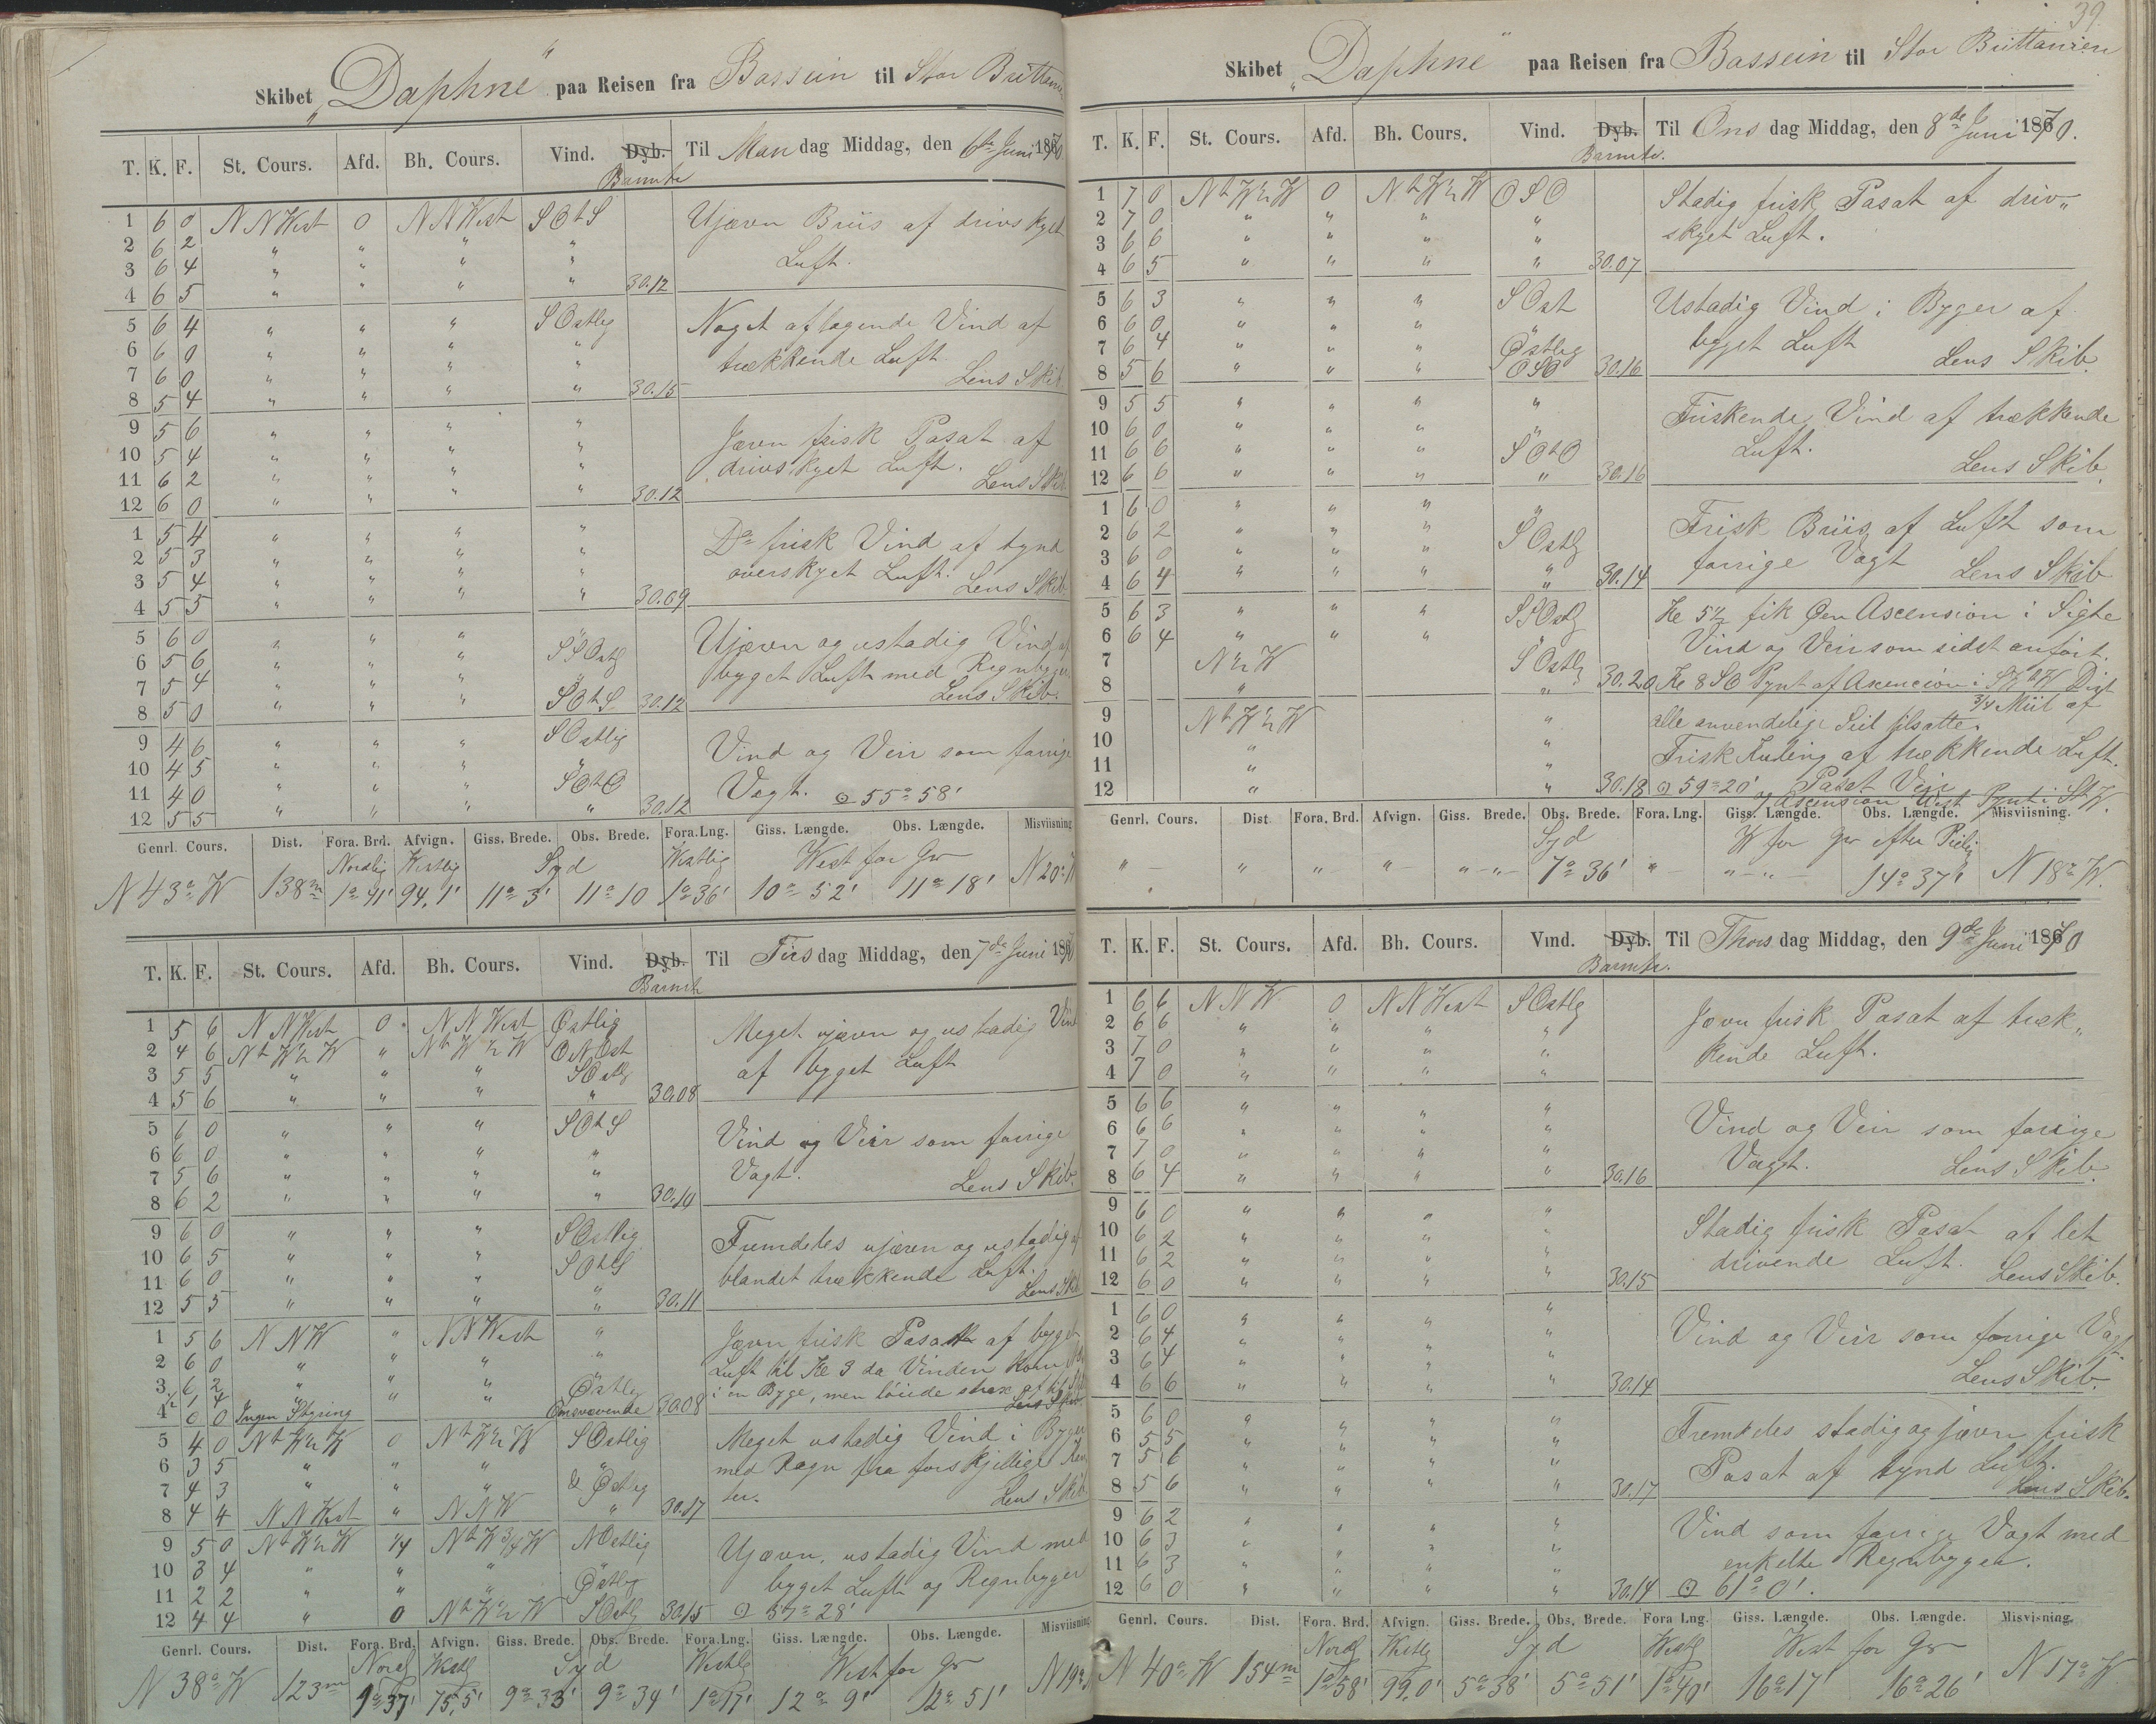 Skibet "Daphne" paa Reisen fra Bassein til Stor Brittanien
T. K. F. St. Cours. Afd. Bh. Cours. Vind. Dyb. Til Mandag Middag, den 6te Juni 1870
Barmtr
1 6 0 NNWest 0 NNWest SOtS Ujævn Briis af drivskyet
2 6 2 " " " " Luft.
3 6 4 " " " "
4 6 5 " " " " 30.12
5 6 4 " " " SOstlig Noget aftagende Vind af
6 6 0 " " " " trækkende Luft.
7 6 0 " " " " Lens Skib.
8 5 4 " " " " 30.15
9 5 6 " " " " Jævn frisk Pasat af
10 5 4 " " " " drivskyet Luft.
11 6 2 " " " " Lens Skib
12 6 0 " " " " 30.12
1 5 4 " " " " Do frisk Vind af tynd
2 5 3 " " " " overskyet Luft.
3 5 4 " " " " Lens Skib
4 5 5 " " " " 30.09
5 6 0 " " " " Ujævn og ustadig Vind af
6 5 6 " " " SSOstlg byget Luft med Regnbyger
7 5 4 " " " " Lens Skib.
8 5 0 " " " SOtS 30.12
9 4 6 " " " SOstlig Vind og Veir som forrige
10 4 5 " " " " Vagt. ⊙ 55° 58'
11 4 0 " " " SOtO
12 5 5 " " " " 30.12
Genrl. Cours. Dist. Fora. Brd. Afvign. Giss. Brede. Obs. Brede. Fora.Lng. Giss. Længde. Obs. Længde. Misviisning
Nordlig Westlig Syd Westlig West for Gr
N 43° W 138m 1° 41' 94,1' 11° 3' 11° 10 1° 36' 10° 52' 11° 18' N 20° W
T. K. F. St. Cours. Afd. Bh. Cours. Vind. Dyb. Til Tirsdag Middag, den 7de Juni 1870
Barmtr
1 5 6 NNWest 0 NNWest Østlig Meget ujævn og ustadig Vind
2 4 6 NtW½W " NtW½W ONOst af byget Luft
3 5 5 " " " SOstlg
4 5 6 " " " " 30.08
5 6 0 " " " SOtS Vind og Veir som forrige
6 6 0 " " " " Vagt.
7 5 6 " " " " Lens Skib.
8 6 2 " " " " 30.14
9 6 0 " " " SOstlig Fremdeles ujævn og ustadig af
10 6 5 " " " SOtS blandet trækkende Luft.
11 6 0 " " " " Lens Skib
12 5 5 " " " " 30.11
1 5 6 NNW " NNWest " Jævn frisk Pasat af byget
2 6 0 " " " " Luft til Kl 3 da Vinden kom
3 6 2 " " " Østlig i en Byge, men løiede strax af
½ 1 4
4 0 0 Ingen Styring Omsvævende 30.08 Lens Skib
5 4 0 NtW½W 0 NtW½W SOstlig Meget ustadig Vind i Byger
6 3 5 " " " " med Regn fra forskjellige
7 4 3 " " " & Østlig ter.
8 4 4 NNWest " NNW " 30.17 Lens Skib
9 5 0 NtW½W ¼ NtW¾W NOstlig Ujævn, ustadig Vind med
10 3 4 " " " " byget Luft og Regnbyger
11 2 2 " " " Østlig
12 4 4 " 0 NtW½W SOstlg 30.15 ⊙ 57° 28'
Genrl. Cours. Dist. Fora. Brd. Afvign. Giss. Brede. Obs. Brede. Fora.Lng. Giss. Længde. Obs. Længde. Misviisning
Nordl Westlg Syd Westlg West for Gr
N 38° W 123m 1° 37' 75,5' 9° 33' 9° 34' 1° 17' 12° 9' 12° 51' N 19°
39.
Skibet "Daphne" paa Reisen fra Bassein til Stor Brittanien
T. K. F. St. Cours. Afd. Bh. Cours. Vind. Dyb. Til Onsdag Middag, den 8de Juni 1870.
Barmtr.
1 7 0 NtW½W 0 NtW½W OSO Stadig frisk Pasat af driv„
2 7 0 " " " " skyet Luft.
3 6 6 " " " "
4 6 5 " " " " 30.07
5 6 3 " " " SOst Ustadig Vind i Byger af
6 6 0 " " " " byget Luft
7 6 4 " " " Østlig Lens Skib.
8 5 6 " " " OSO 30.16
9 5 5 " " " " Friskende Vind af trækkende
10 6 0 " " " " Luft.
11 6 6 " " " SOtO Lens Skib.
12 6 6 " " " " 30.16
1 6 0 " " " " Frisk Briis af Luft som
2 6 2 " " " SOstlg forrige Vagt
3 6 0 " " " " Lens Skib
4 6 4 " " " " 30.14
5 6 3 " " " SSOstlg Kl 5½ fik Øen Ascension i Sigte
6 6 4 " " " " Vind og Veir som sidst anført.
7 N½W SOstlg
8 " " 30.20 Kl 8 SO Pynt af Ascencion i SWtW Dist
9 NtW½W " ¾ Miil af
10 " " alle anvendelige Seil tilsatte.
11 " " Frisk Kuling af trækkende Luft.
12 " " 30.18 ⊙ 59° 20' Pasat Veir
og Ascension West Pynt i StW.
Genrl. Cours. Dist Fora. Brd. Afvign. Giss. Brede. Obs. Brede. Fora. Lng. Giss. Længde. Obs. Længde. Misviisning.
Syd W for Gr efter Peilig
" " " " " 7° 36' " " 14° 37' N 18° W.
T. K. F. St. Cours. Afd. Bh. Cours. Vind. Dyb. Til Thorsdag Middag, den 9de Juni 1870
Barmtr.
1 6 6 NNW. 0 NNWest SOstlg Jævn frisk Pasat af træk„
2 6 6 " " " " kende Luft.
3 7 0 " " " "
4 7 0 " " " "
5 6 6 " " " " Vind og Veir som forrige
6 6 6 " " " " Vagt.
7 7 0 " " " " Lens Skib.
8 6 4 " " " " 30.16
9 6 0 " " " " Stadig frisk Pasat af let
10 6 2 " " " " drivende Luft.
11 6 2 " " " " Lens Skib.
12 6 0 " " " " 30.15
1 6 0 " " " " Vind og Veir som forrige Vagt
2 6 4 " " " "
3 6 4 " " " " Lens Skib.
4 6 6 " " " " 30.14
5 6 0 " " " " Fremdeles stadig og jævn frisk
6 5 5 " " " " Pasat af tynd Luft.
7 5 6 " " " " Lens Skib.
8 5 6 " " " " 30.17
9 6 2 " " " " Vind som forrige Vagt med
10 6 3 " " " " enkelte Regnbyger.
11 6 3 " " " "
12 6 0 " " " " 30.14 ⊙ 61° 0'.
Genrl. Cours. Dist. Fora. Brd. Afvign. Giss. Brede. Obs. Brede. Fora Lng. Giss. Længde. Obs. Længde. Misvisning.
Nordl Westlg Syd Westlg West for Gr
N 40° W 154m 1° 58' 99,0' 5° 38' 5° 51' 1° 40' 16° 17' 16° 26' N 17° W